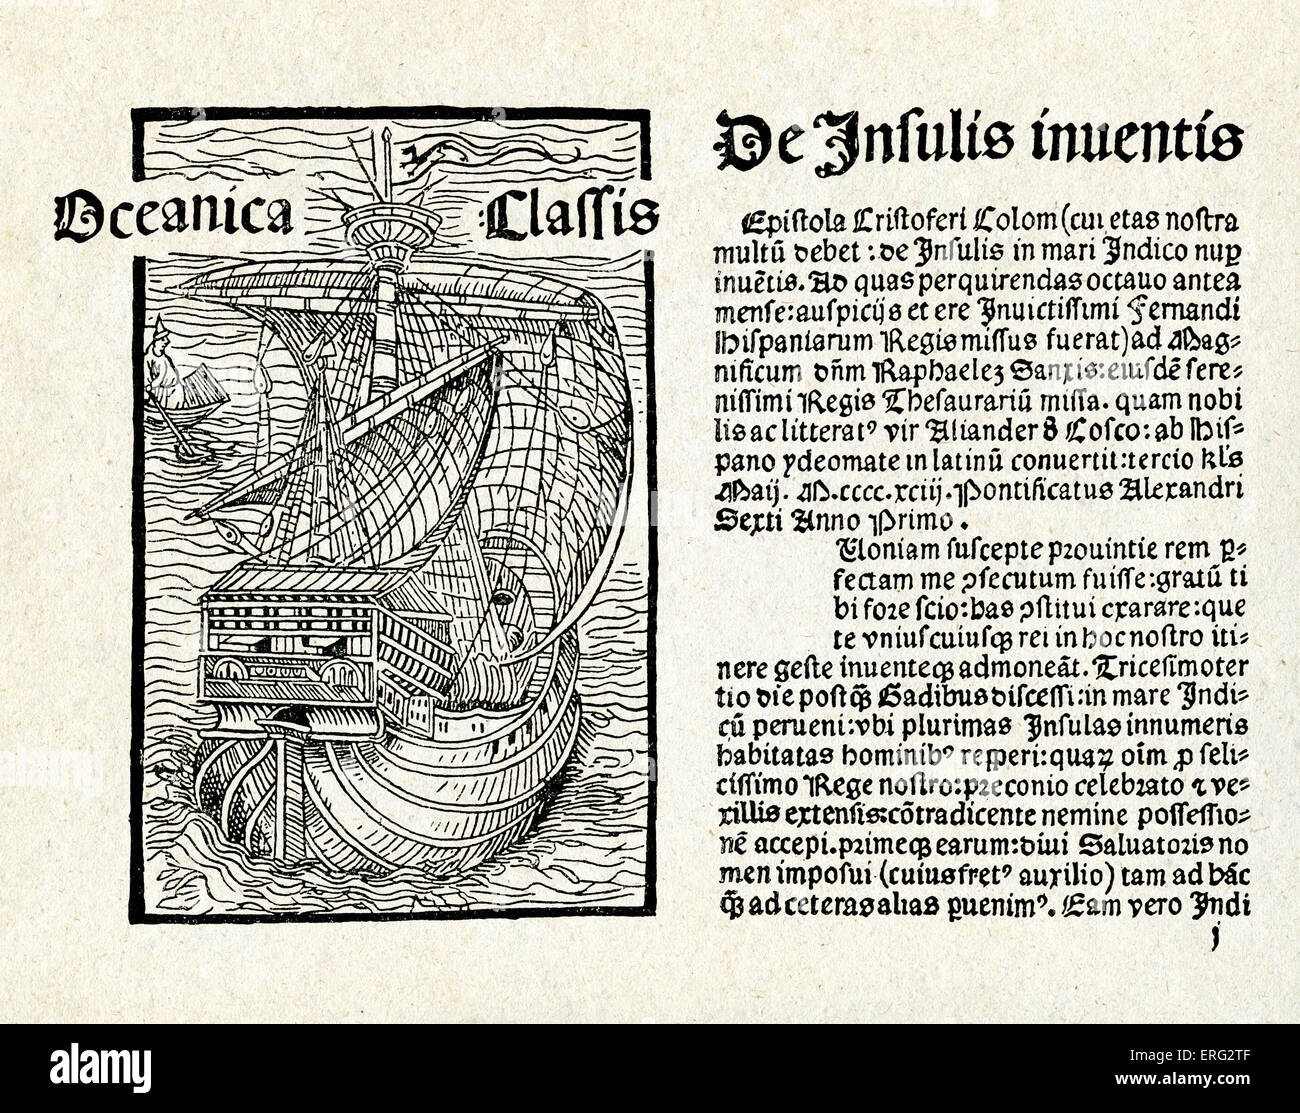 Oceanica Classis
De Insulis inuentis
Epistola Cristoferi Colom (cui etas nostra
multū debet : de Insulis in mari Indico nuꝑ
inuētis. Ad quas perquirendas octauo antea
mense: auspicijs et ere Inuictissimi Fernandi
Hispaniarum Regis missus fuerat) ad Mag-
nificum dn̄m Raphaelez Sanxis: eiusdē sere-
nissimi Regis Thesaurariū missa. quam nobi
lis ac litteratꝰ vir Aliander d̕ Cosco: ab His-
pano ydeomate in latinū conuertit: tercio kl̕s
Maij. M.cccc.xciij. Pontificatus Alexandri
Sexti Anno Primo.
Uoniam suscepte prouintie rem ꝑ-
fectam me ꝯsecutum fuisse: gratū ti
bi fore scio: has ꝯstitui exarare: que
te vniuscuiusqꝫ rei in hoc nostro iti-
nere geste inuenteqꝫ admoneāt. Tricesimoter
tio die postqꝫ Gadibus discessi: in mare Indi-
cū perueni: vbi plurimas Insulas innumeris
habitatas hominibꝰ repperi: quaꝝ oīm ꝓ feli-
cissimo Rege nostro: preconio celebrato ⁊ ve-
xillis extensis: cōtradicente nemine possessio-
nē accepi. primeqꝫ earum: diui Saluatoris no
men imposui (cuius fretꝰ auxilio) tam ad hāc
qꝫ ad ceteras alias ꝑuenimꝰ. Eam vero Indi
j
alamy
Image ID: ERG2TF
www.alamy.com